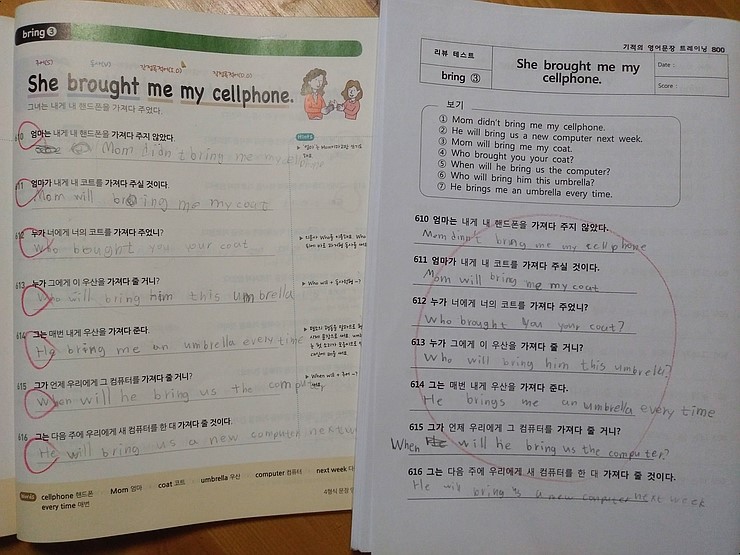 bring ③
주어(S) 동사(V) 간접목적어(I.O) 직접목적어(D.O)
She brought me my cellphone.
그녀는 내게 내 핸드폰을 가져다 주었다.
610 엄마는 내게 내 핸드폰을 가져다 주지 않았다.
Mom didn't bring me my cellphone
611 엄마가 내게 내 코트를 가져다 주실 것이다.
Mom will bring me my coat
612 누가 너에게 너의 코트를 가져다 주었니?
Who bought you your coat
613 누가 그에게 이 우산을 가져다 줄 거니?
Who will bring him this umbrella
614 그는 매번 내게 우산을 가져다 준다.
He bring me an umbrella every time
615 그가 언제 우리에게 그 컴퓨터를 가져다 줄 거니?
When will he bring us the computer
616 그는 다음 주에 우리에게 새 컴퓨터를 한 대 가져다 줄 것이다.
He will bring us a new computer next
Words cellphone 핸드폰 Mom 엄마 coat 코트 umbrella 우산 computer 컴퓨터 next week
every time 매번
4형식 문장
기적의 영어문장 트레이닝 800
리뷰 테스트
bring ③
She brought me my cellphone.
Date :
Score :
보기
① Mom didn't bring me my cellphone.
② He will bring us a new computer next week.
③ Mom will bring me my coat.
④ Who brought you your coat?
⑤ When will he bring us the computer?
⑥ Who will bring him this umbrella?
⑦ He brings me an umbrella every time.
610 엄마는 내게 내 핸드폰을 가져다 주지 않았다.
Mom didn't bring me my cellphone
611 엄마가 내게 내 코트를 가져다 주실 것이다.
Mom will bring me my coat
612 누가 너에게 너의 코트를 가져다 주었니?
Who brought you your coat?
613 누가 그에게 이 우산을 가져다 줄 거니?
Who will bring him this umbrella?
614 그는 매번 내게 우산을 가져다 준다.
He brings me an umbrella every time
615 그가 언제 우리에게 그 컴퓨터를 가져다 줄 거니?
When will he bring us the computer?
616 그는 다음 주에 우리에게 새 컴퓨터를 한 대 가져다 줄 것이다.
He will bring us a new computer next week